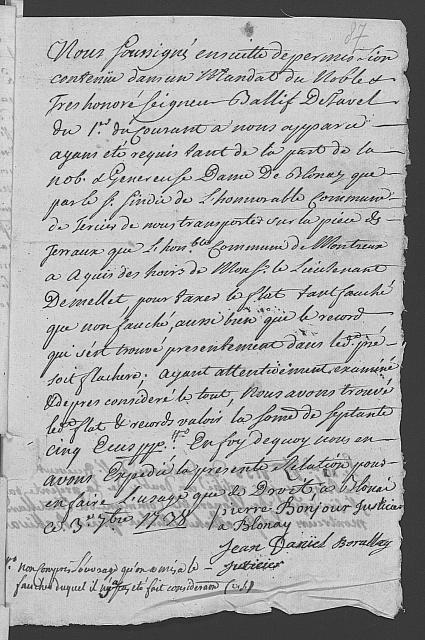 87
Nous soussigné ensuitte de permission
contenüe dans un Mandat du Noble &
Tres honoré Seigneur Ballif De
du 1.er du Courant a nous apparu
ayans eté requis tant de la part de la
nob. & Genereuse Dame De Blonay que
par le Sr. Sindic de L'honnorable Commune
de nous transporter sur la piece de
Terraux que L'honble Commune de Montreux
a Aquis des hoirs de Monsr. le Lieutenant
Demellet pour taxer le flat tant fauché
que non fauché, aussi bien que le record
qui s'est trouvé presentement dans led. pré
soit flachere. ayant attentivement examiné
& de pres consideré le tout, Nous avons trouvé
led. flat & records valoir la somme de septante
cinq Ecus En foy dequoy nous en
avons Expedié la presente Relation pour
en faire L'usage que de Droit, a Blonay
ce 3.e 7bre 1738 Pierre Bonjour Justicier
a Blonay
Jean Daniel
Justicier
non Compris L'ouvrage qu'on a mis a le
faucher duquel il n'a pas eté fait consideraon